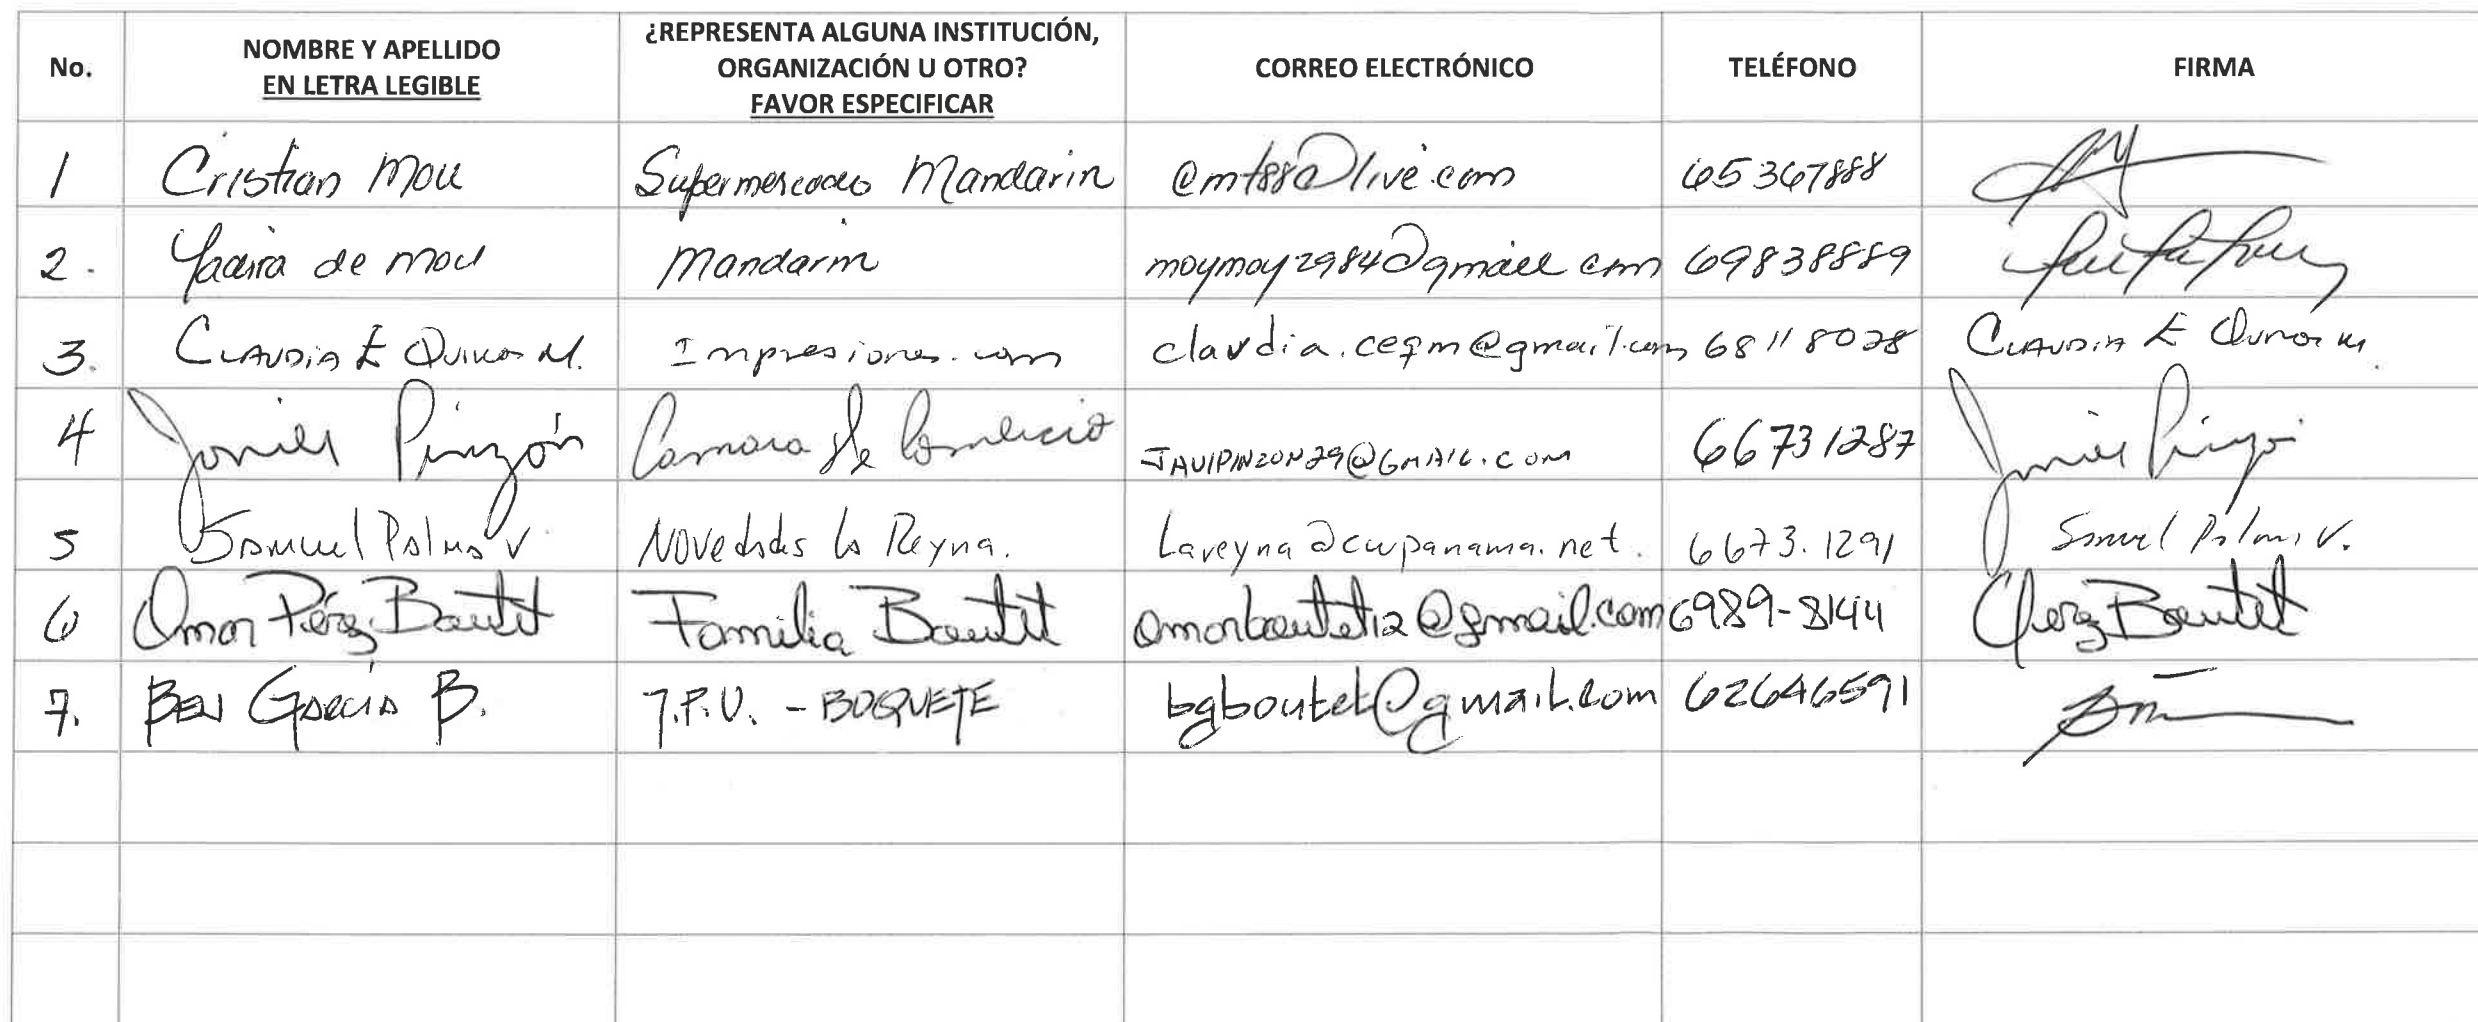 No. NOMBRE Y APELLIDO EN LETRA LEGIBLE ¿REPRESENTA ALGUNA INSTITUCIÓN, ORGANIZACIÓN U OTRO? FAVOR ESPECIFICAR CORREO ELECTRÓNICO TELÉFONO FIRMA
1 Cristian Mou Supermercados Mandarin @live.com 65367888
2. Yadira de Mou Mandarin moymoy2984@gmail com 69838889
3. CLAUDIA E M. Impresiones.com claudia.ceqm@gmail.com 68118028 CLAUDIA E M.
4 Javier Pinzón Camara de Comercio JAVIPINZON29@GMAIL.COM 66731287 Javier Pinzón
5 Samuel Palma V. Novedades la Reyna. Lareyna@cwpanama.net. 6673.1291 Samuel Palma V.
6 Omar Pérez Boutet Familia Boutet omarboutet12@gmail.com 6989-8144 OPerez Boutet
7. BEN GARCIA B. - BOQUETE bgboutet@gmail.com 62646591